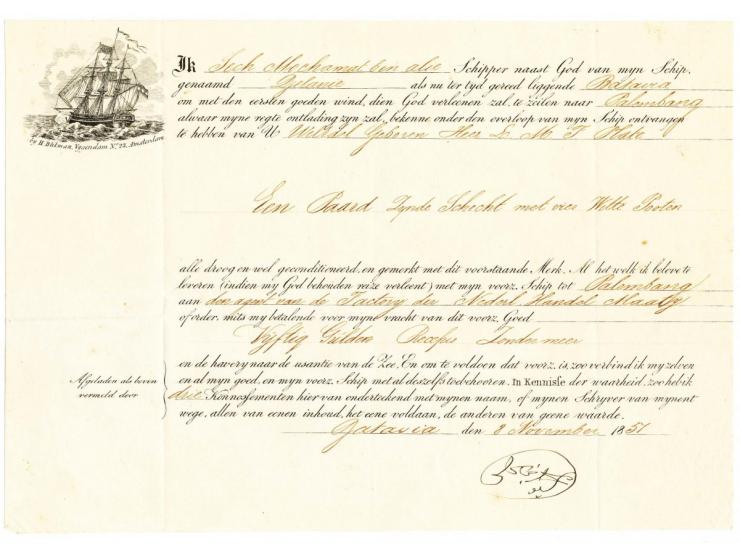 by H. Bülman, Vysendam No. 23, Amsterdam
Ik Sech Mochamat bin alie Schipper naast God van myn Schip,
genaamd Gelanie als nu ter tyd gereed liggende Batavia
om met den eersten goeden wind, dien God verleenen zal, te zeilen naar Palembang
alwaar myne regte ontlading zyn zal, bekenne onder den overloop van myn Schip ontvangen
te hebben van U Weledel Geboren Heer L. M. F.
Een Paard Zynde Schecht met vier Witte Pooten
alle droog en wel geconditioneerd, en gemerkt met dit voorstrande Merk. Al het welk ik belove te
leveren (indien my God behouden reize verleent) met myn voorz. Schip tot Palembang
aan den agent van de Factory der Nederl Handel Maaty
of order, mits my betalende voor myne vracht van dit voorz. Goed
Vyftig Gulden Recepis Zonder meer
en de havery naar de usantie van de Zee. En om te voldoen dat voorz. is, zoo verbind ik my zelven
en al myn goed, en myn voorz. Schip met al deszelfs toebehooren. In Kennisse der waarheid, zoo heb ik
drie Konnossementen hier van onderteekend met mynen naam, of mynen Schryver van mynent
wege, allen van eenen inhoud, het eene voldaan, de anderen van geene waarde.
Afgeladen als boven
vermeld door
Batavia den 8 November 1851